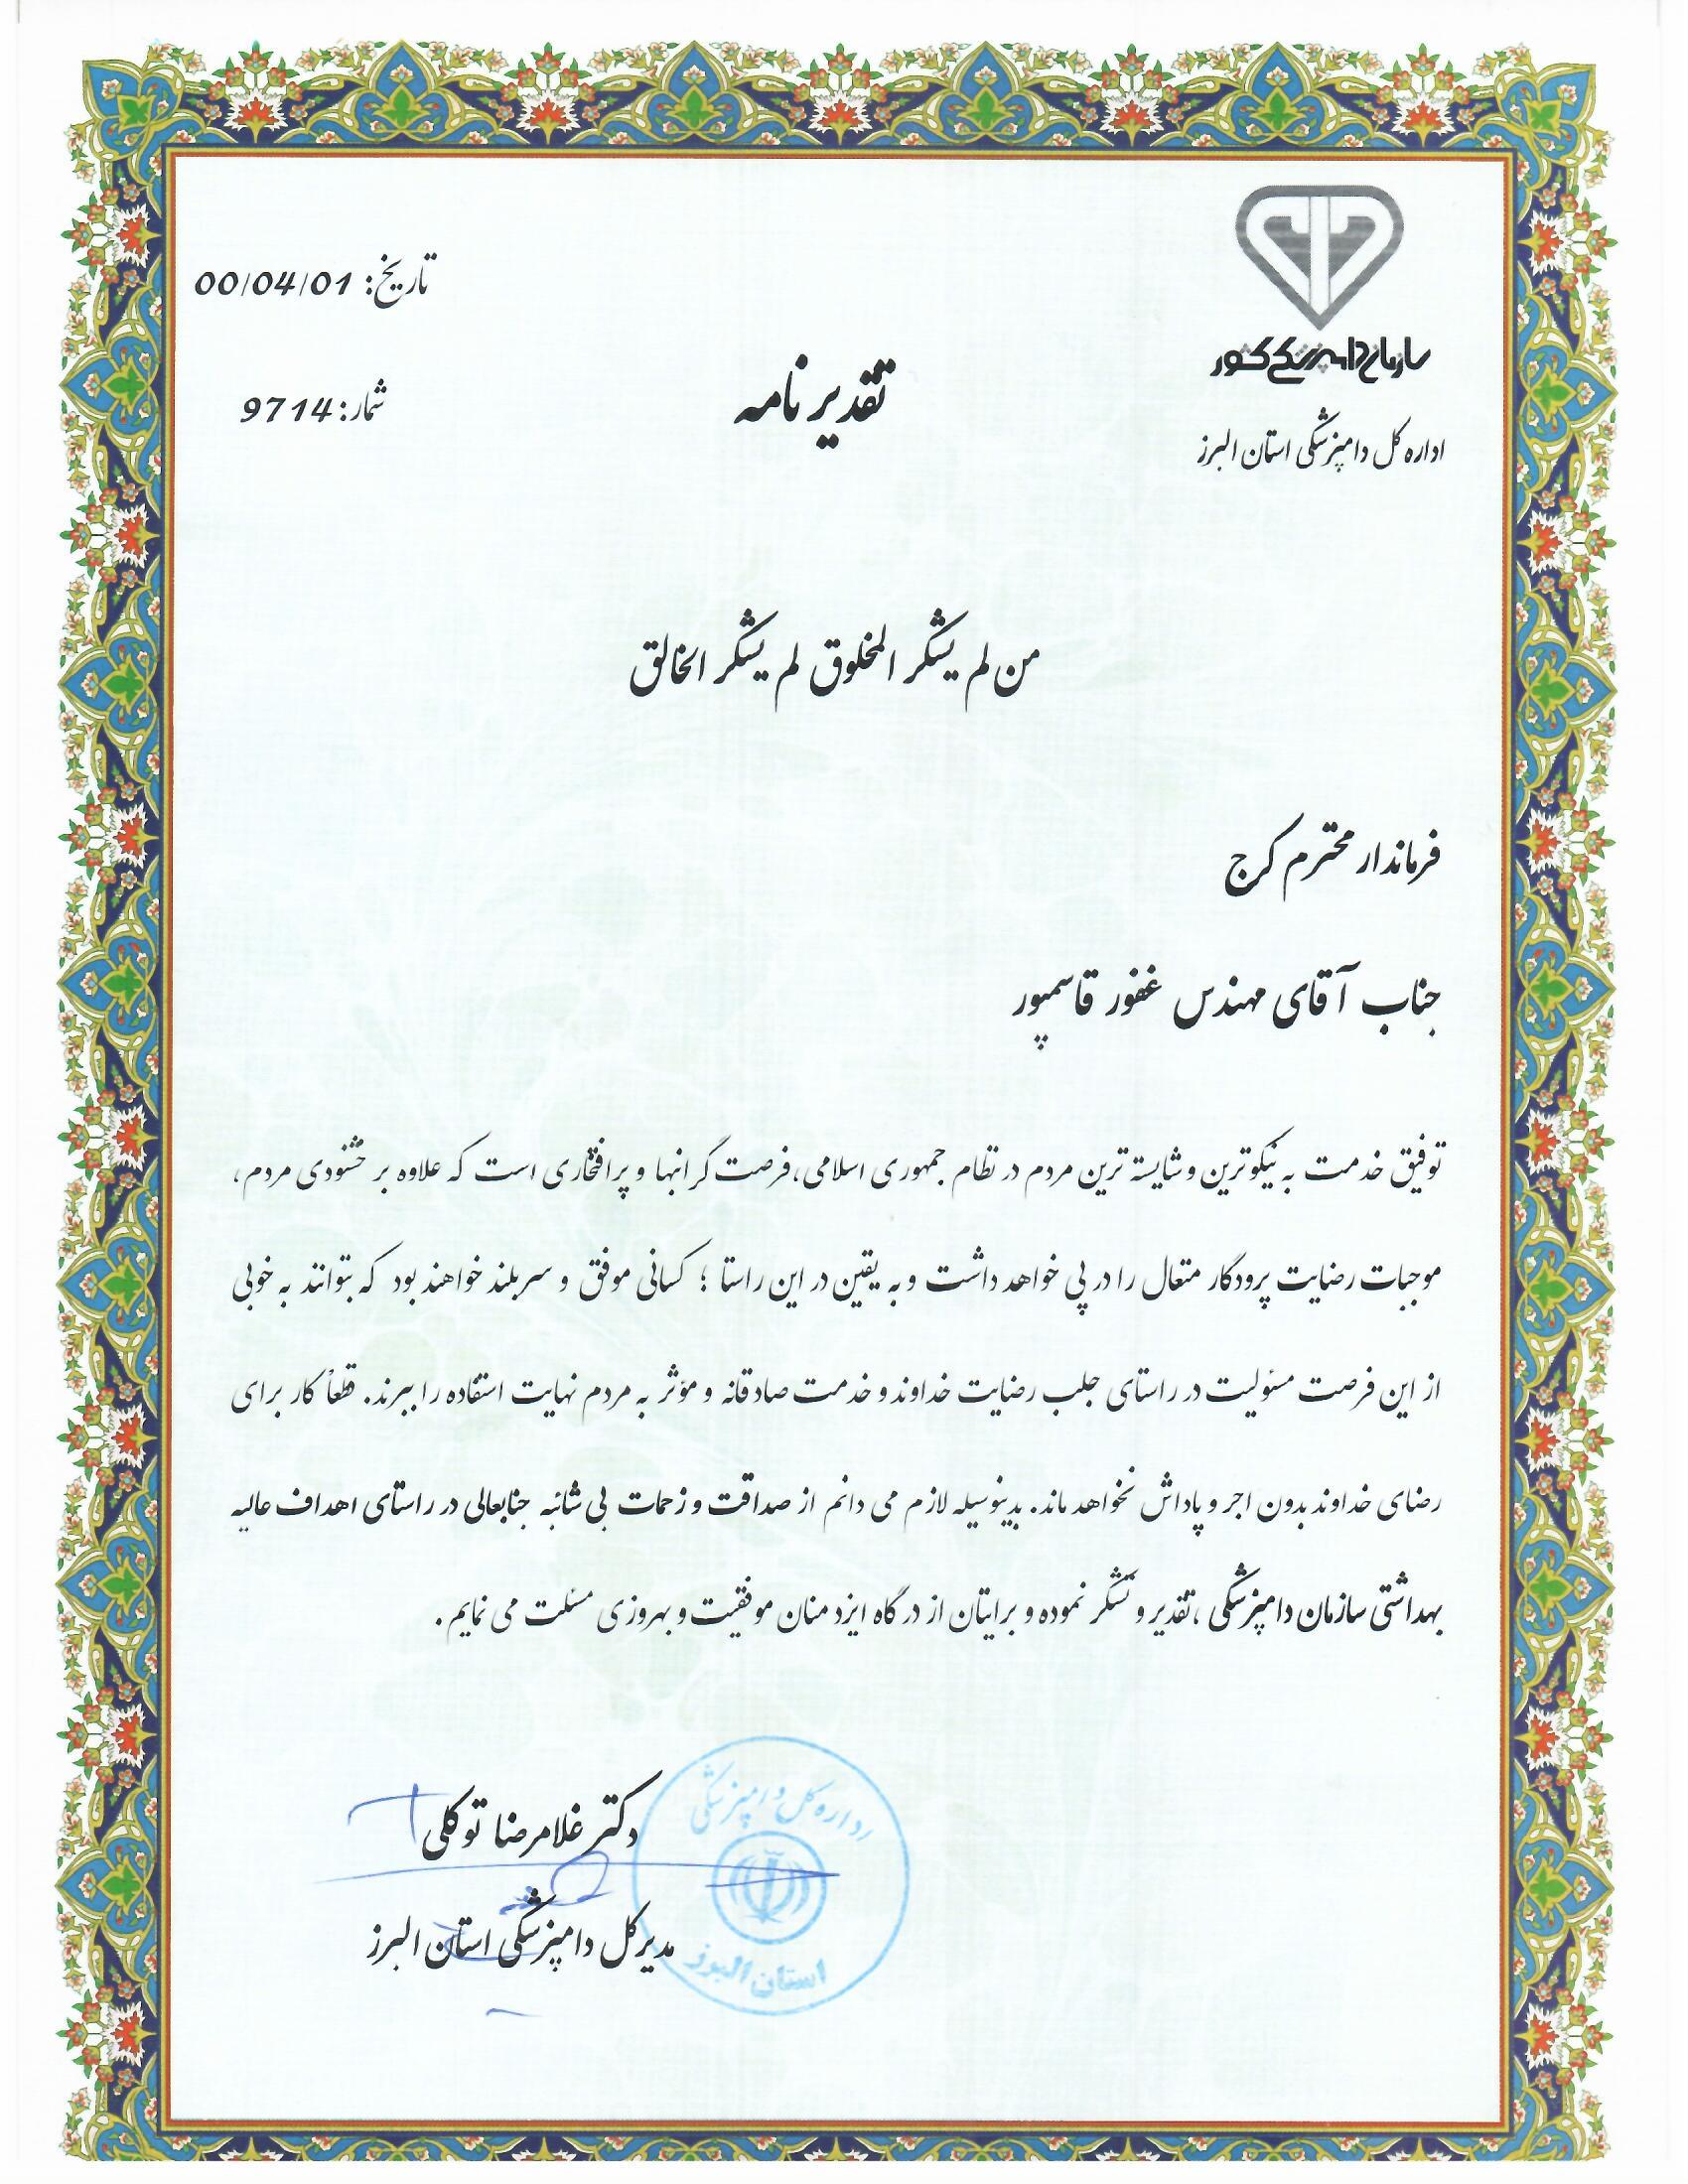 سازمان دامپزشکی کشور
اداره کل دامپزشکی استان البرز
تاریخ: 00/04/01
شمار: 9714
تقدیر نامه
من لم یشکر المخلوق لم یشکر الخالق
فرماندار محترم کرج
جناب آقای مهندس غفور قاسمپور
توفیق خدمت به نیکوترین و شایسته ترین مردم در نظام جمهوری اسلامی، فرصت گرانبها و پرافتخاری است که علاوه بر خشنودی مردم،
موجبات رضایت پرودگار متعال را در پی خواهد داشت و به یقین در این راستا ؛ کسانی موفق و سربلند خواهند بود که بتوانند به خوبی
از این فرصت مسئولیت در راستای جلب رضایت خداوند و خدمت صادقانه و مؤثر به مردم نهایت استفاده را ببرند. قطعاً کار برای
رضای خداوند بدون اجر و پاداش نخواهد ماند. بدینوسیله لازم می دانم از صداقت و زحمات بی شائبه جنابعالی در راستای اهداف عالیه
بهداشتی سازمان دامپزشکی ،تقدیر و تشکر نموده و برایتان از درگاه ایزد منان موفقیت و بهروزی مسئلت می نمایم.
دکتر غلامرضا توکلی
مدیرکل دامپزشکی استان البرز
اداره کل دامپزشکی
استان البرز